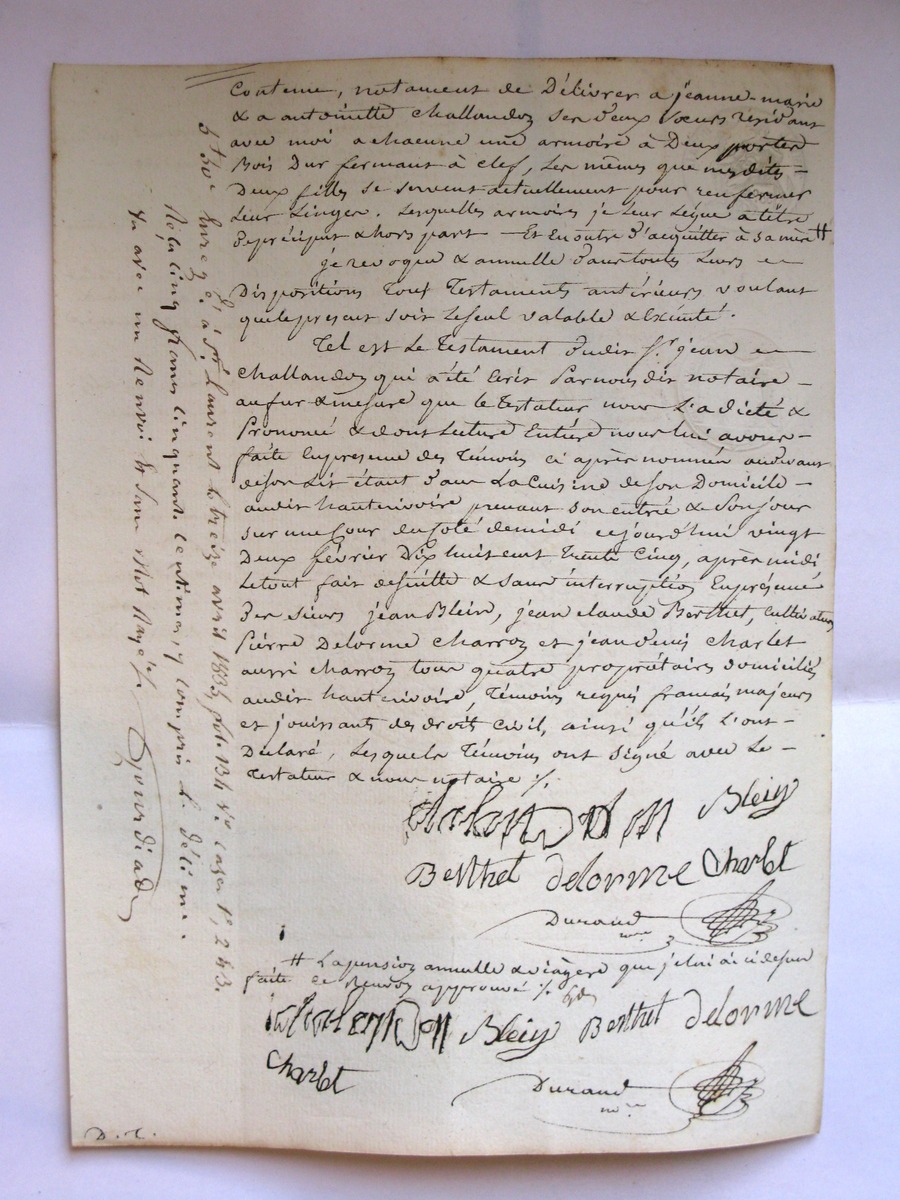 Contenue, notament de Délivrer a jeanne-marie
& a antoinette Challandon ses deux sœurs residant
avec moi a chacune une armoire à Deux portes
Bois Dur fermant à clef, Les mêmes que mesdites -
Deux filles se servent actuellement pour renfermer
Leur Linges. Lesquelles armoires je Leur Légue a titre
De préciput & hors part - Et En outre D'acquitter à sa mère #
je revoque & annulle dans toutes Leurs -
Dispositions Tous Testaments antérieurs voulant
que le present soit Le seul valable & Exécuté.
Tel est Le Testament dudit Sr. jean -
Challandon qui a été Ecrit Par nous dit notaire -
au fur & mesure que le testateur nous L'a dicté &
Prononcé & dont Lecture Entière nous lui avons -
faite En presence des Témoins ci après nommés audevant
de son Lit étant dans La Cuisine de son Domicile -
audit hauterivoire prenant son entrée & Son jour
sur une Cour du coté de midi cejourd'hui vingt
Deux février Dix huit cent trente Cinq, après midi
Le tout fait de suitte & sans interruption En présence
Des sieurs jean Blein, jean claude Berthet, Cultivateurs
Pierre Delorme Charron et jean denis Charlet
aussi charron tous quatre propriétaires domiciliés
audit hauterivoire, Témoins requis français majeurs
et jouissants des droit Civil, ainsi qu'ils L'ont -
Déclaré, Lesquels Témoins ont Signé avec Le -
Testateur & nous notaire ./.
Blein
Berthet delorme Charlet
Durand
nre
# La pension annuelle & viagère que je lui ai ci dessus
faite Ce Renvoi approuvé ./.
Blein Berthet delorme
Charlet
Durand
nre
D. C.
Enregé. à St. Laurent le treize avril 1835, fo. 134 Vo. cases 1e, 2 & 3.
Reçu Cinq francs cinquante centimes, y compris le décime
Vu avec un Renvoi & sans Mot Rayé ./.